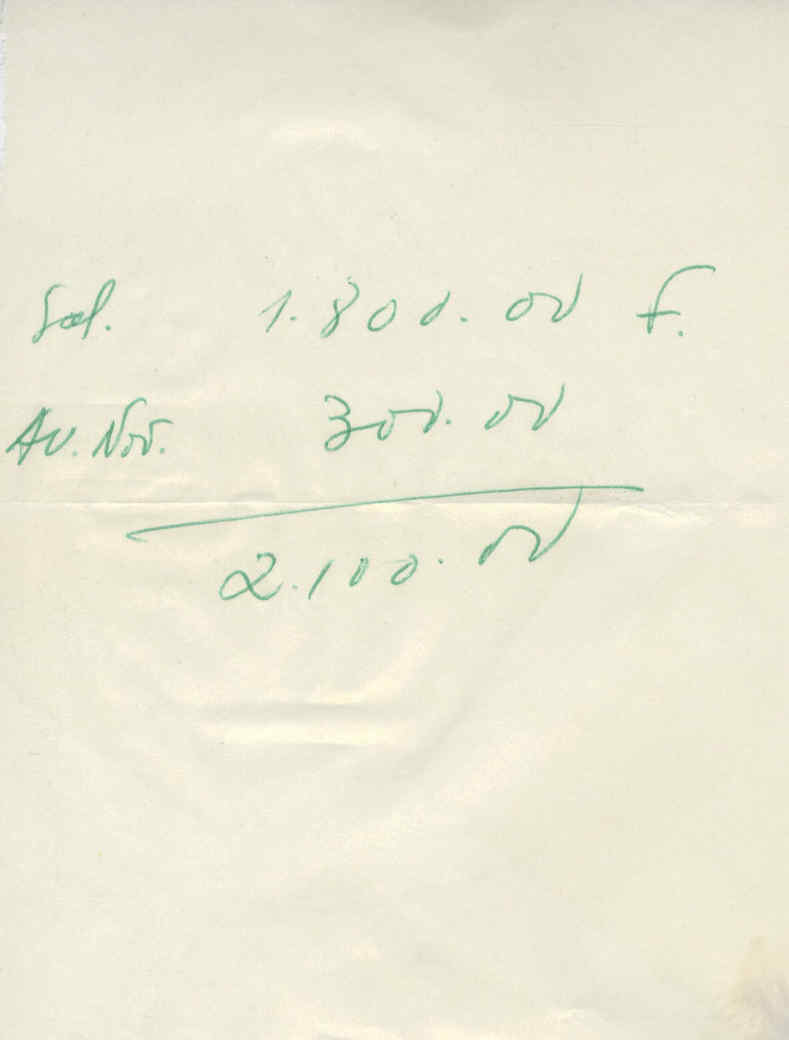 Sal. 1.800.00 F.
Av. Nov. 300.00
2.100.00